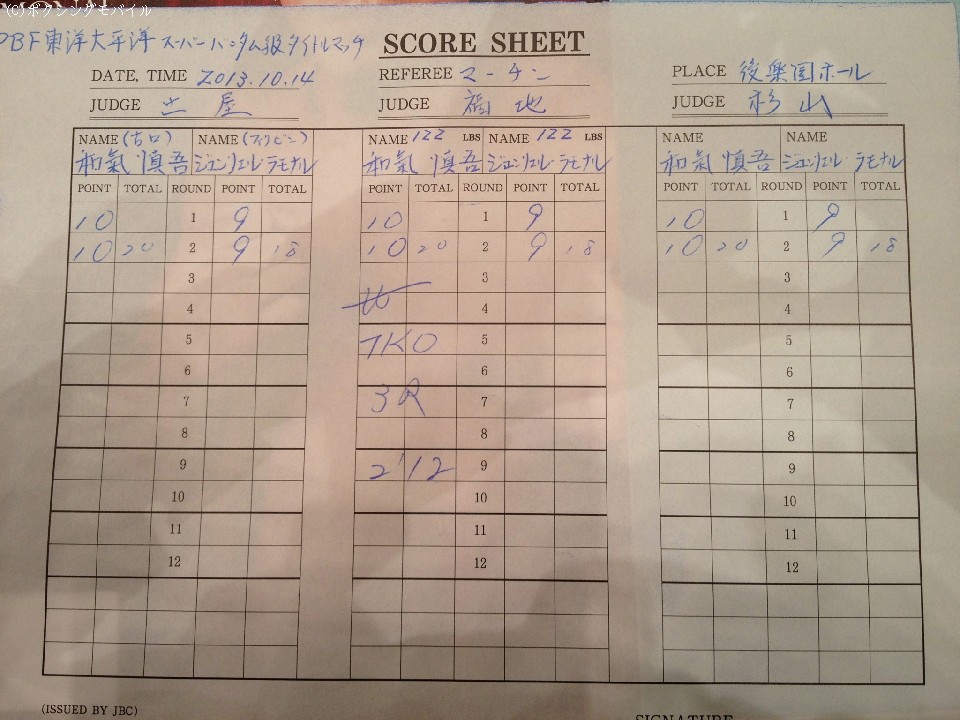 (C)ボクシングモバイル
PBF東洋太平洋スーパーバンタム級タイトルマッチ SCORE SHEET
DATE, TIME 2013.10.14 REFEREE マーチン PLACE 後楽園ホール
JUDGE 土屋 JUDGE 福地 JUDGE 杉山
NAME (古口) NAME (フィリピン) NAME 122 LBS NAME 122 LBS NAME NAME
和氣 慎吾 ジョンリエル・ラモナル 和氣 慎吾 ジョンリエル・ラモナル 和氣 慎吾 ジョンリエル・ラモナル
POINT TOTAL ROUND POINT TOTAL POINT TOTAL ROUND POINT TOTAL POINT TOTAL ROUND POINT TOTAL
10 1 9 10 1 9 10 1 9
10 20 2 9 18 10 20 2 9 18 10 20 2 9 18
3 3 3
4 4 4
5 TKO 5 5
6 6 6
7 3R 7 7
8 8 8
9 2'12 9 9
10 10 10
11 11 11
12 12 12
(ISSUED BY JBC) SIGNATURE